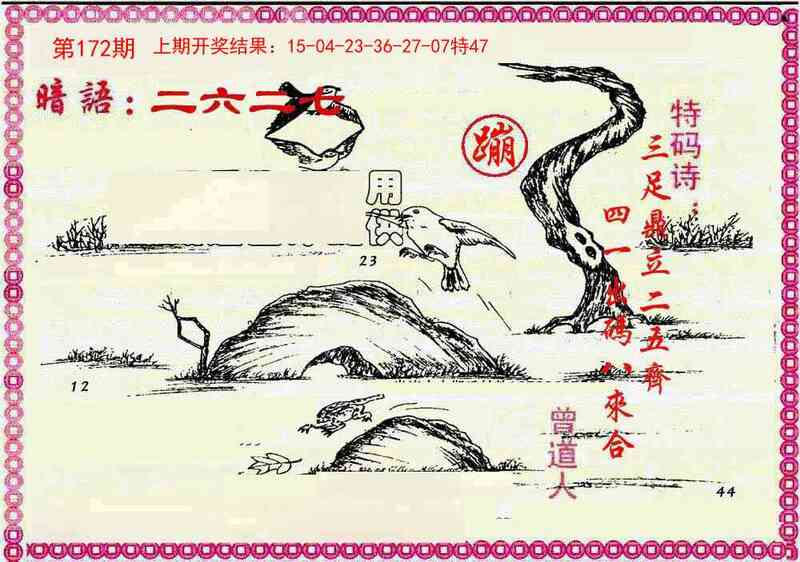 第172期 上期开奖结果：15-04-23-36-27-07特47
暗語：二六二七
蹦
特码诗：
三足鼎立二五齊
四一出码八來合
用
23
12
曾道人
44